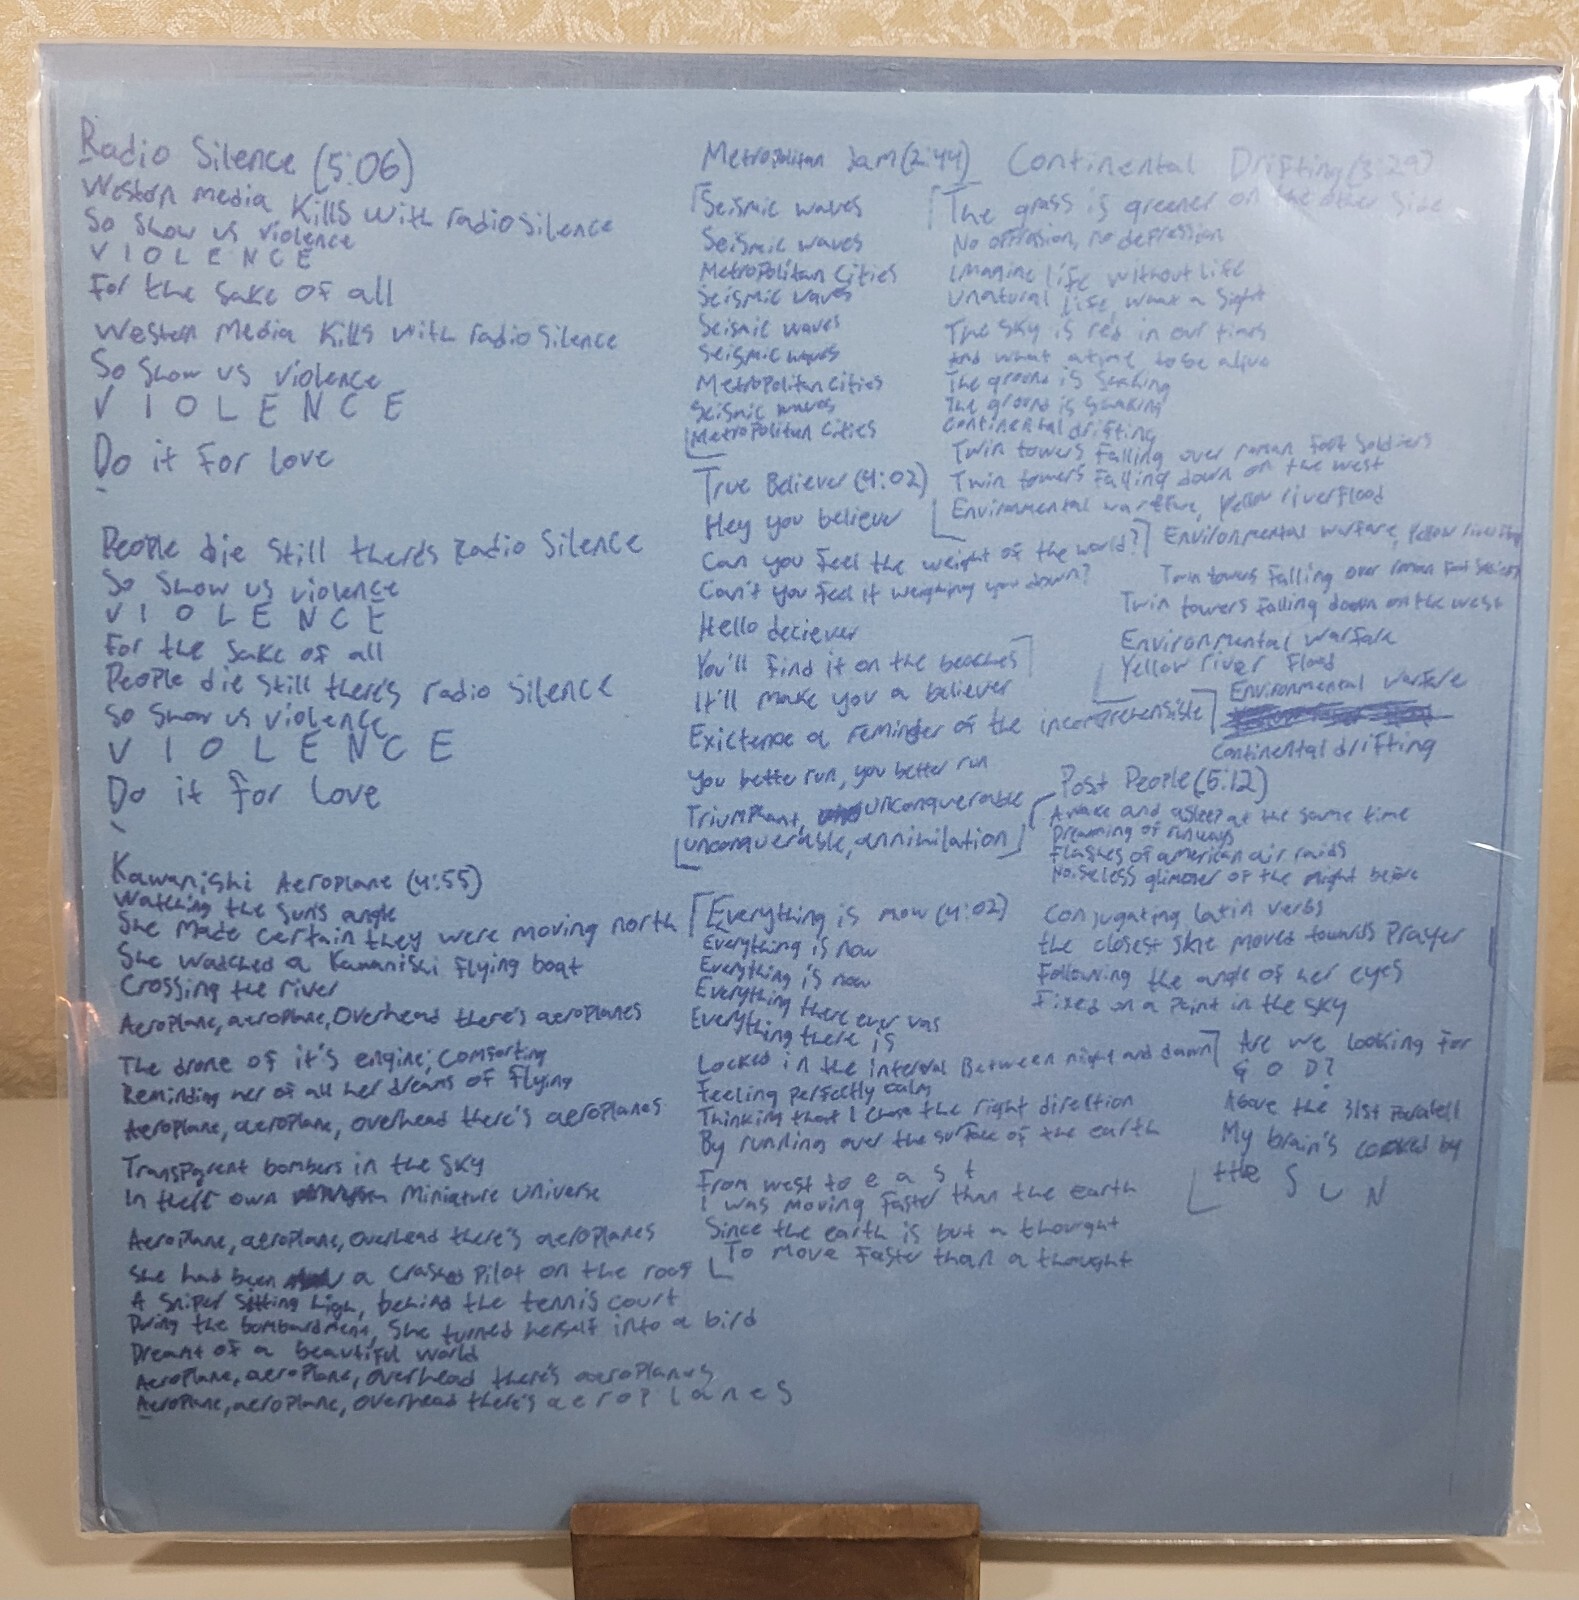 Radio Silence (5:06)
Western media Kills with radio silence
So show us violence
V I O L E N C E
For the sake of all
Western Media Kills with radio silence
So show us violence
V I O L E N C E
Do it for love
People die still theres Radio Silence
So show us violence
V I O L E N C E
For the sake of all
People die still there's radio silence
So show us violence
V I O L E N C E
Do it for love
Kawanishi Aeroplane (4:55)
Watching the sun's angle
She made certain they were moving north
She watched a Kawanishi flying boat
Crossing the river
Aeroplane, aeroplane, overhead there's aeroplanes
The drone of it's engine; comforting
Reminding her of all her dreams of flying
Aeroplane, aeroplane, overhead there's aeroplanes
Transparent bombers in the sky
In their own miniature universe
Aeroplane, aeroplane, overhead there's aeroplanes
She had been a crashed pilot on the roof
A sniper sitting high, behind the tennis court
During the bombardment, she turned herself into a bird
Dreamt of a beautiful world
Aeroplane, aeroplane, overhead there's aeroplanes
Aeroplane, aeroplane, overhead there's a e r o p l a n e s
Metropolitan Jam (2:44)
Seismic waves
Seismic waves
Metropolitan Cities
Seismic waves
Seismic waves
Seismic waves
Metropolitan cities
Seismic waves
Metropolitan cities
True Believer (4:02)
Hey you believer
Can you feel the weight of the world?
Can't you feel it weighing you down?
Hello deciever
You'll find it on the beaches
It'll make you a believer
Existence a reminder of the incomprehensible
You better run, you better run
Triumphant, unconquerable
unconquerable, annihilation
Everything is now (4:02)
Everything is now
Everything is now
Everything there ever was
Everything there is
Locked in the interval Between night and dawn
Feeling perfectly calm
Thinking that I chose the right direction
By running over the surface of the earth
From west to e a s t
I was moving faster than the earth
Since the earth is but a thought
To move faster than a thought
Continental Drifting (3:29)
The grass is greener on the other side
No oppression, no depression
Imagine life without life
Unatural life, what a sight
The sky is red in our times
And what a time to be alive
The ground is shaking
The ground is shaking
Continental drifting
Twin towers falling over roman foot soldiers
Twin towers falling down on the west
Environmental warfare, yellow river flood
Environmental warfare, yellow river flood
Twin towers falling over roman foot soldiers
Twin towers falling down on the west
Environmental warfare
Yellow river flood
Environmental warfare
Continental drifting
Post People (5:12)
Awake and asleep at the same time
Dreaming of runways
Flashes of american air raids
Noiseless glimmer of the night before
Conjugating latin verbs
the closest she moved towards prayer
Following the angle of her eyes
Fixed on a point in the sky
Are we looking for
G O D?
Above the 31st Paralell
My brain's cooked by
the S U N